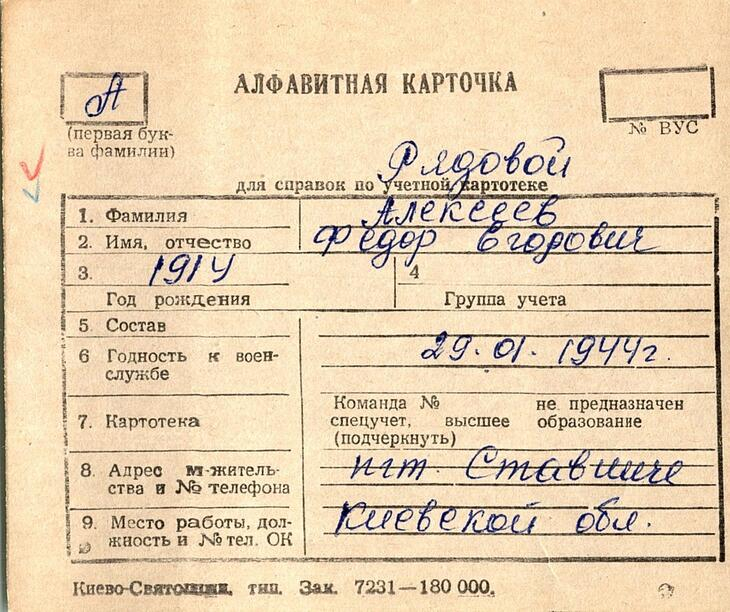 А
АЛФАВИТНАЯ КАРТОЧКА
(первая бук-
ва фамилии)
№ ВУС
Рядовой
для справок по учетной картотеке
1. Фамилия Алексеев
2. Имя, отчество Федор Егорович
3. 1914 4
Год рождения Группа учета
5. Состав
6 Годность к воен-
службе 29.01.1944г.
7. Картотека Команда № не предназначен
спецучет, высшее образование
(подчеркнуть)
8. Адрес м-жительства и № телефона пгт. Ставище
9. Место работы, дол-
жность и № тел. ОК Киевской обл.
Киево- тип. Зак. 7231—180 000.